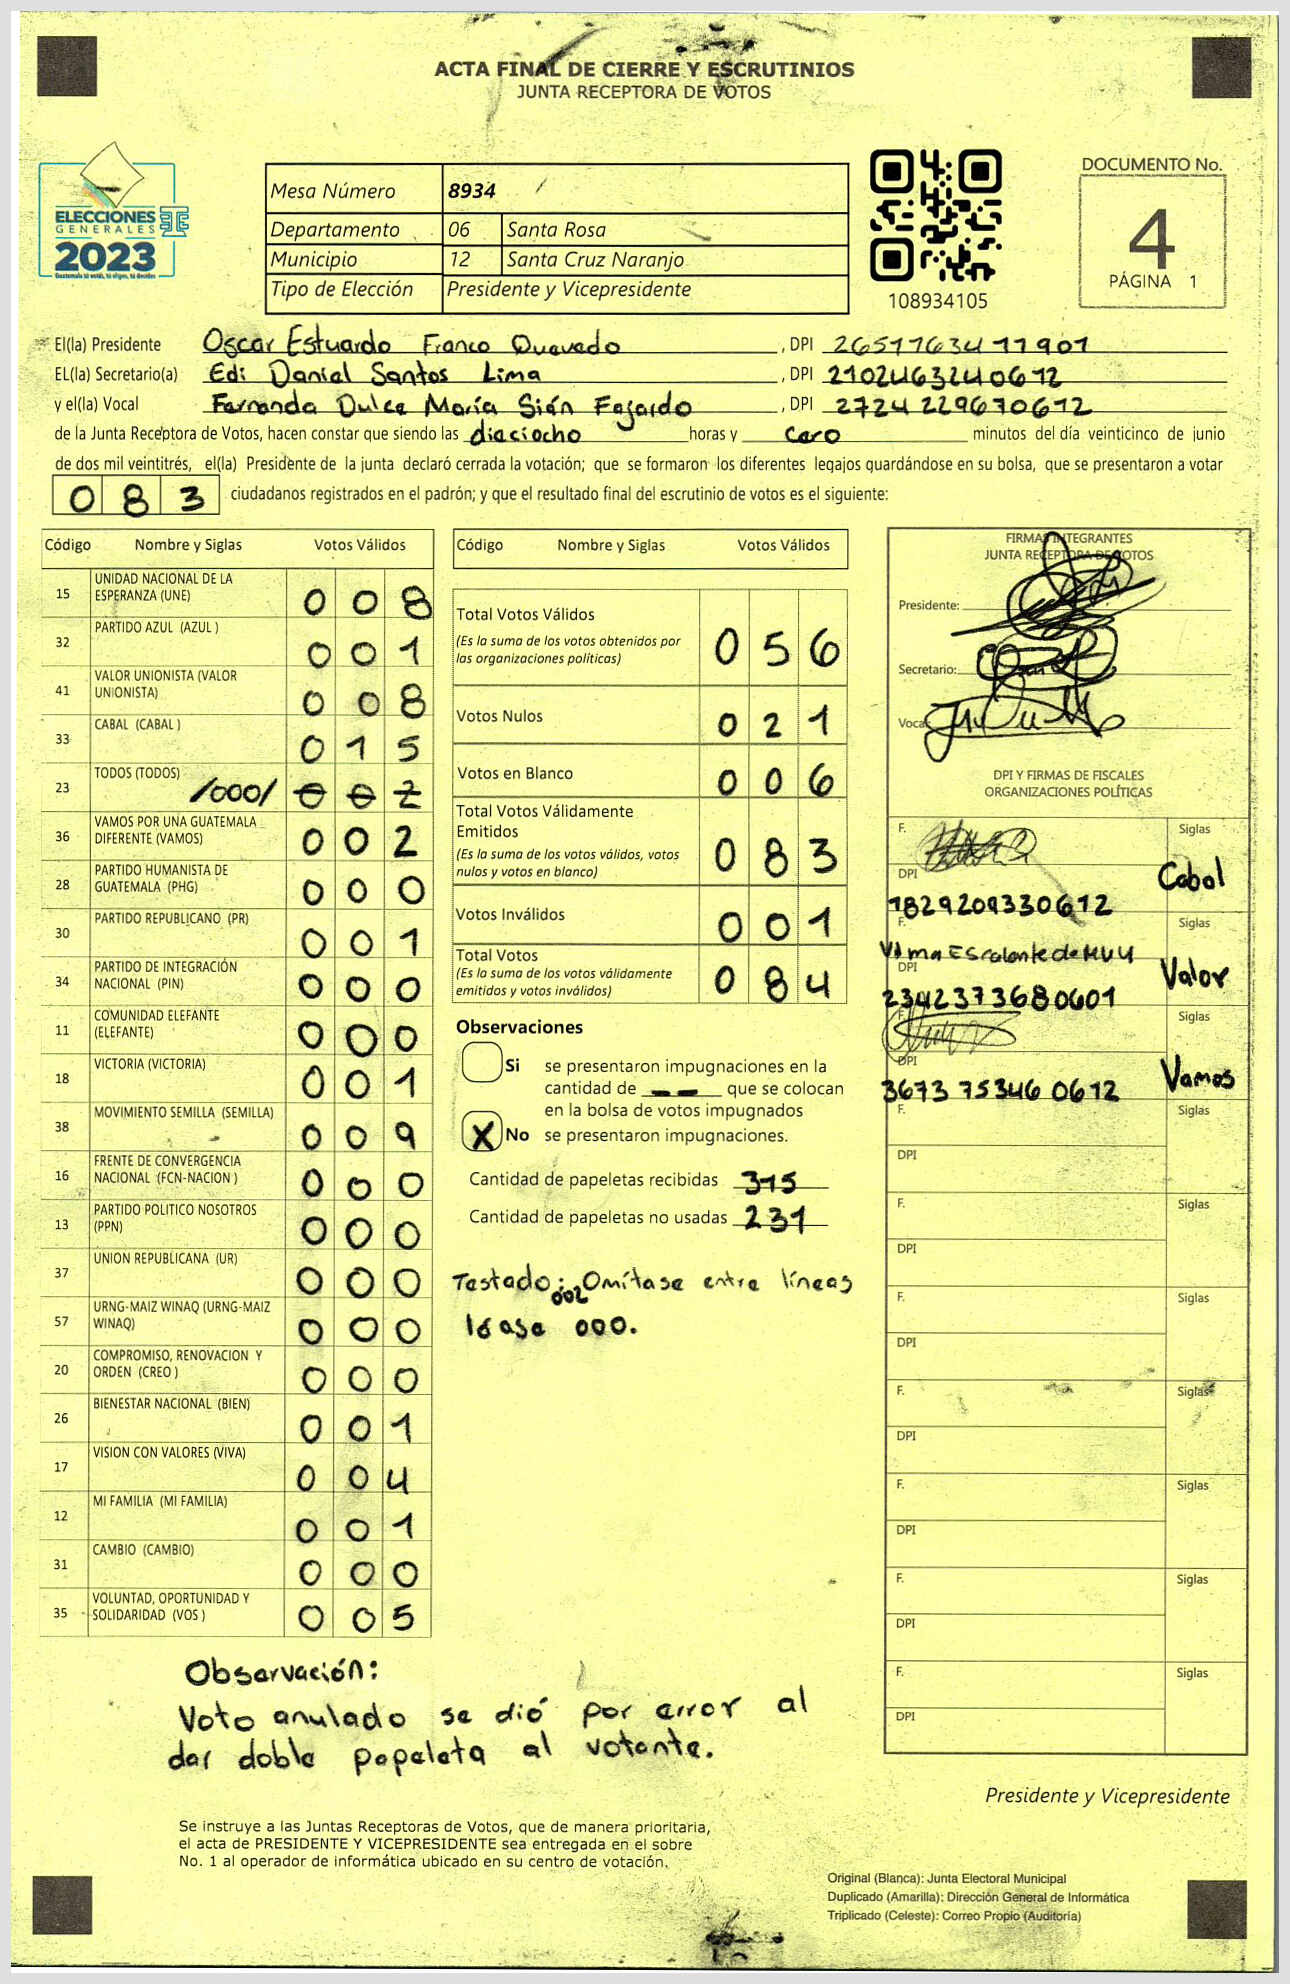 ACTA FINAL DE CIERRE Y ESCRUTINIOS
JUNTA RECEPTORA DE VOTOS
ELECCIONES
GENERALES
2023
Guatemala tú votás, tú eliges, tú decides
Mesa Número 8934
Departamento 06 Santa Rosa
Municipio 12 Santa Cruz Naranjo
Tipo de Elección Presidente y Vicepresidente
108934105
DOCUMENTO No.
4
PÁGINA 1
El(la) Presidente Oscar Estuardo Franco Quevedo , DPI 2651763411901
EL(la) Secretario(a) Edi Danial Santos Lima , DPI 2102463240612
y el(la) Vocal Fernanda Dulce María Sián Fajardo , DPI 2724229670612
de la Junta Receptora de Votos, hacen constar que siendo las dieciocho horas y cero minutos del día veinticinco de junio
de dos mil veintitrés, el(la) Presidente de la junta declaró cerrada la votación; que se formaron los diferentes legajos guardándose en su bolsa, que se presentaron a votar
083 ciudadanos registrados en el padrón; y que el resultado final del escrutinio de votos es el siguiente:
Código Nombre y Siglas Votos Válidos
15 UNIDAD NACIONAL DE LA
ESPERANZA (UNE) 008
32 PARTIDO AZUL (AZUL ) 001
41 VALOR UNIONISTA (VALOR
UNIONISTA) 008
33 CABAL (CABAL ) 015
23 TODOS (TODOS) /000/ 002
36 VAMOS POR UNA GUATEMALA
DIFERENTE (VAMOS) 002
28 PARTIDO HUMANISTA DE
GUATEMALA (PHG) 000
30 PARTIDO REPUBLICANO (PR) 001
34 PARTIDO DE INTEGRACIÓN
NACIONAL (PIN) 000
11 COMUNIDAD ELEFANTE
(ELEFANTE) 000
18 VICTORIA (VICTORIA) 001
38 MOVIMIENTO SEMILLA (SEMILLA) 009
16 FRENTE DE CONVERGENCIA
NACIONAL (FCN-NACION ) 000
13 PARTIDO POLITICO NOSOTROS
(PPN) 000
37 UNION REPUBLICANA (UR) 000
57 URNG-MAIZ WINAQ (URNG-MAIZ
WINAQ) 000
20 COMPROMISO, RENOVACION Y
ORDEN (CREO ) 000
26 BIENESTAR NACIONAL (BIEN) 001
17 VISION CON VALORES (VIVA) 004
12 MI FAMILIA (MI FAMILIA) 001
31 CAMBIO (CAMBIO) 000
35 VOLUNTAD, OPORTUNIDAD Y
SOLIDARIDAD (VOS ) 005
Código Nombre y Siglas Votos Válidos
Total Votos Válidos 056
(Es la suma de los votos obtenidos por
las organizaciones políticas)
Votos Nulos 021
Votos en Blanco 006
Total Votos Válidamente
Emitidos 083
(Es la suma de los votos válidos, votos
nulos y votos en blanco)
Votos Inválidos 001
Total Votos 084
(Es la suma de los votos válidamente
emitidos y votos inválidos)
Observaciones
Si se presentaron impugnaciones en la
cantidad de -- que se colocan
en la bolsa de votos impugnados
X No se presentaron impugnaciones.
Cantidad de papeletas recibidas 315
Cantidad de papeletas no usadas 231
Testado: 002 Omítase entre líneas
léase 000.
FIRMAS INTEGRANTES
JUNTA RECEPTORA DE VOTOS
Presidente:
Secretario:
Vocal
DPI Y FIRMAS DE FISCALES
ORGANIZACIONES POLÍTICAS
F. Siglas
DPI Cabal
1829209330612
F. Siglas
Escalante de
DPI Valor
2342373680601
F. Siglas
DPI Vamos
3673 75346 0612
F. Siglas
DPI
F. Siglas
DPI
F. Siglas
DPI
F. Siglas
DPI
F. Siglas
DPI
F. Siglas
DPI
F. Siglas
DPI
Observación:
Voto anulado se dió por error al
dar doble papeleta al votante.
Presidente y Vicepresidente
Se instruye a las Juntas Receptoras de Votos, que de manera prioritaria,
el acta de PRESIDENTE Y VICEPRESIDENTE sea entregada en el sobre
No. 1 al operador de informática ubicado en su centro de votación.
Original (Blanca): Junta Electoral Municipal
Duplicado (Amarilla): Dirección General de Informática
Triplicado (Celeste): Correo Propio (Auditoría)